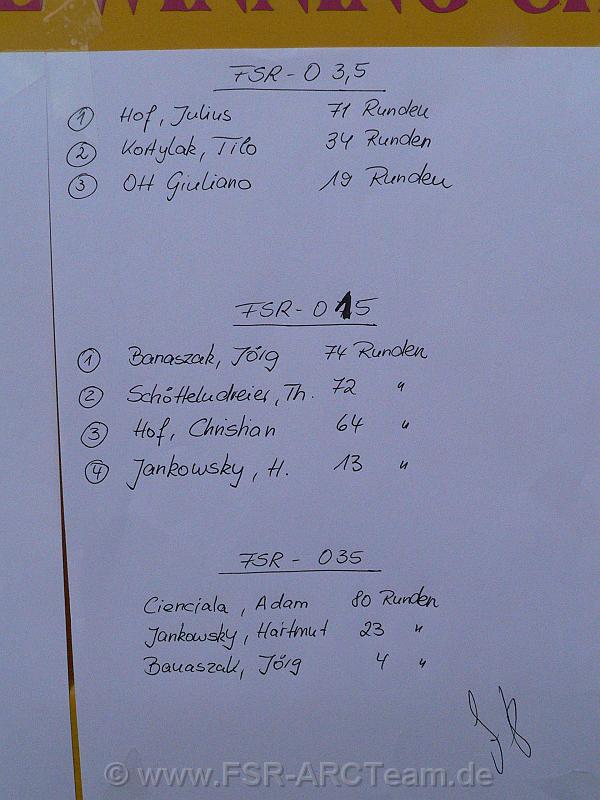 FSR - O 3,5
1 Hof, Julius 71 Runden
2 Kottylak, Tilo 34 Runden
3 Ott Giuliano 19 Runden
FSR - O 15
1 Banaszak, Jörg 74 Runden
2 Schötteludreier, Th. 72 "
3 Hof, Christian 64 "
4 Jankowsky, H. 13 "
FSR - O35
Cienciala, Adam 80 Runden
Jankowsky, Hartmut 23 "
Banaszak, Jörg 4 "
© www.FSR-ARCTeam.de